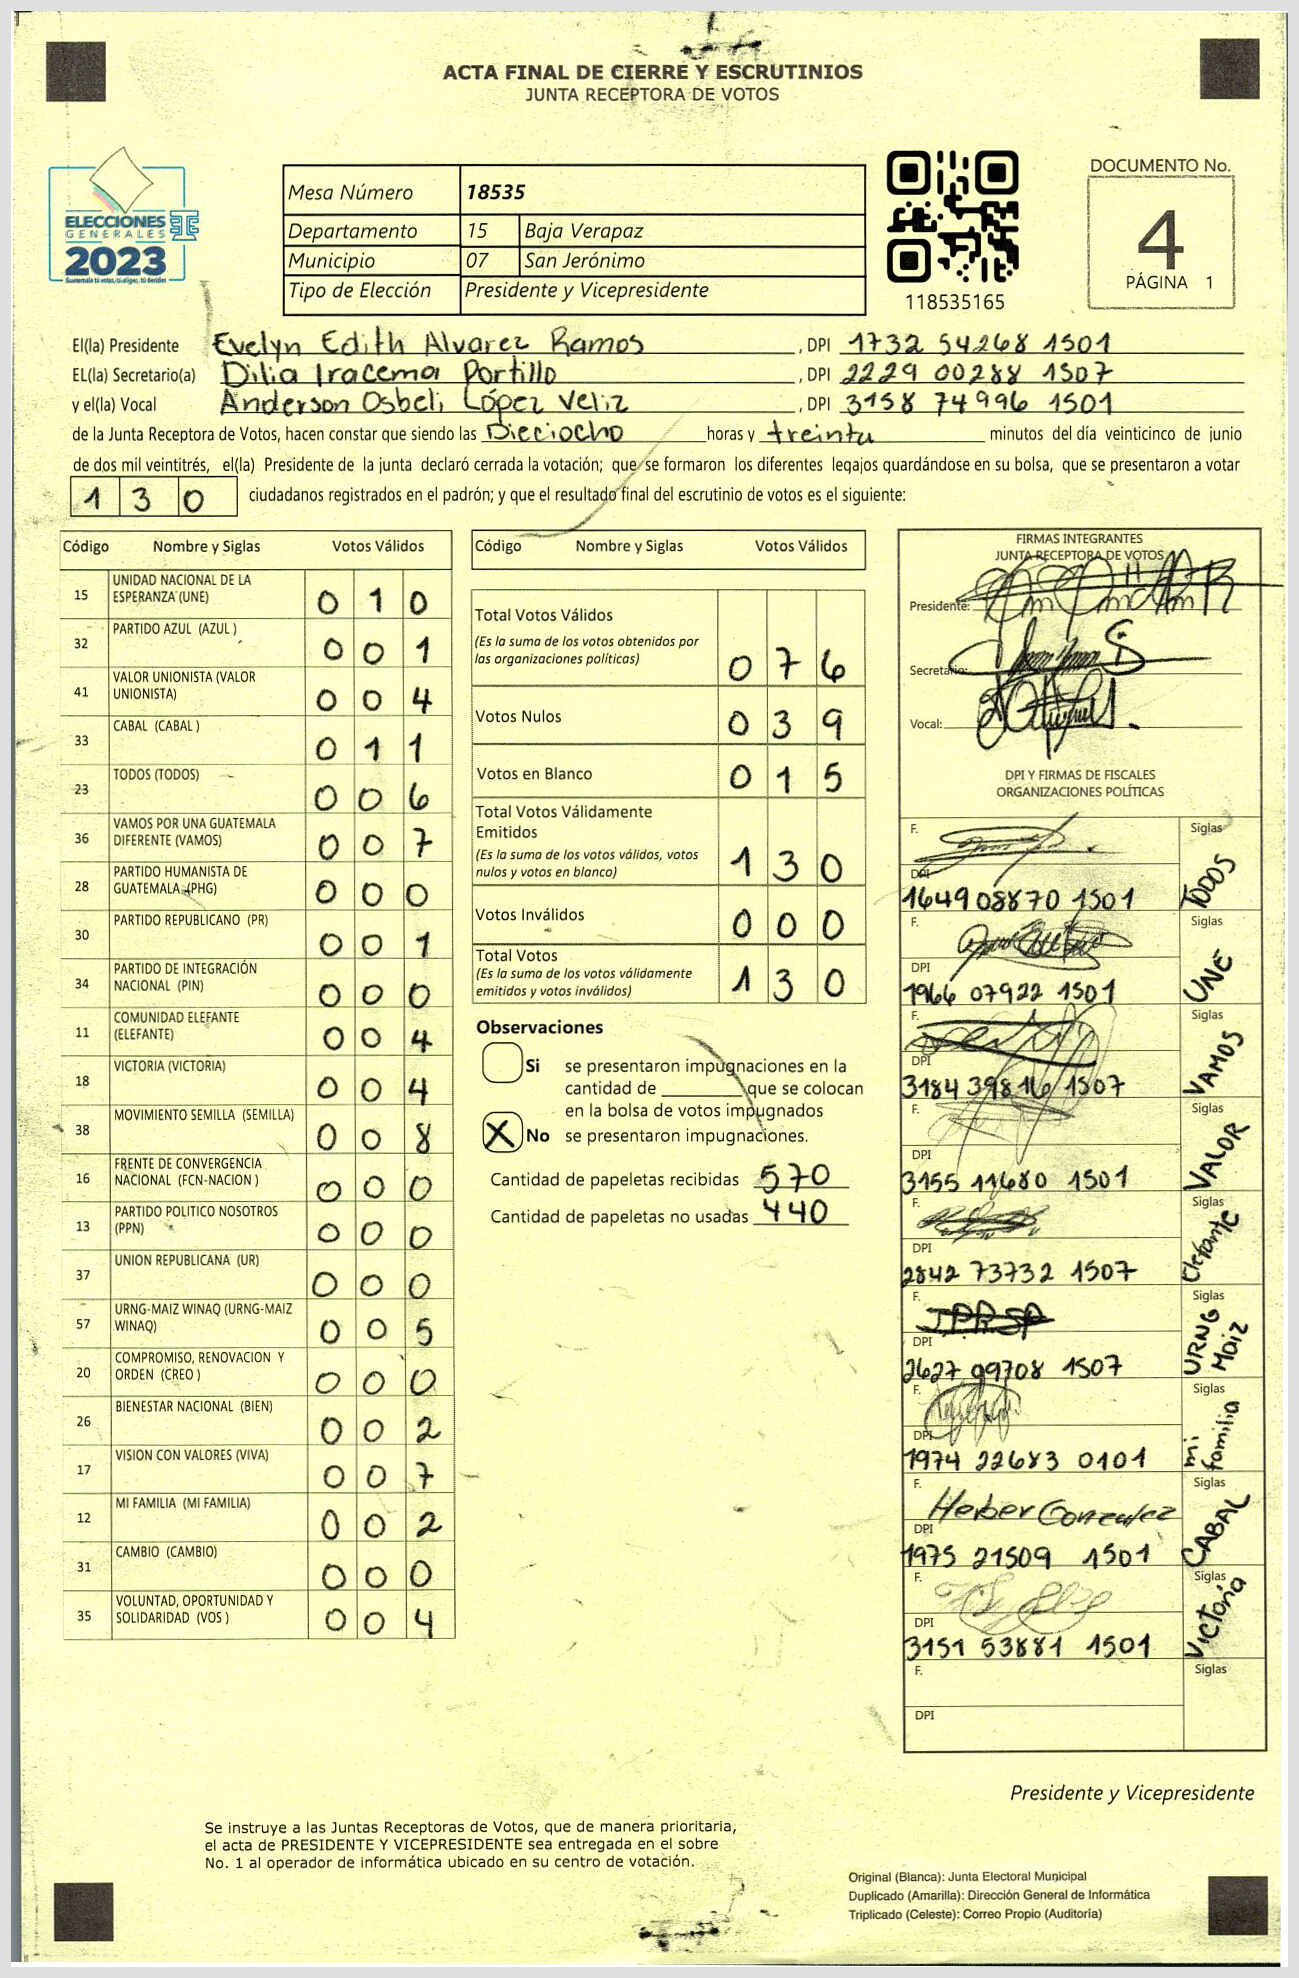 ACTA FINAL DE CIERRE Y ESCRUTINIOS
JUNTA RECEPTORA DE VOTOS
ELECCIONES
GENERALES
2023
Mesa Número 18535
Departamento 15 Baja Verapaz
Municipio 07 San Jerónimo
Tipo de Elección Presidente y Vicepresidente
118535165
DOCUMENTO No.
4
PÁGINA 1
El(la) Presidente Evelyn Edith Alvarez Ramos , DPI 1732 54268 1501
EL(la) Secretario(a) Dilia Iracema Portillo , DPI 2229 00288 1507
y el(la) Vocal Anderson Osbeli López Veliz , DPI 3158 74996 1501
de la Junta Receptora de Votos, hacen constar que siendo las Dieciocho horas y treinta minutos del día veinticinco de junio
de dos mil veintitrés, el(la) Presidente de la junta declaró cerrada la votación; que se formaron los diferentes legajos guardándose en su bolsa, que se presentaron a votar
130 ciudadanos registrados en el padrón; y que el resultado final del escrutinio de votos es el siguiente:
Código Nombre y Siglas Votos Válidos
15 UNIDAD NACIONAL DE LA
ESPERANZA (UNE) 0 1 0
32 PARTIDO AZUL (AZUL ) 0 0 1
41 VALOR UNIONISTA (VALOR
UNIONISTA) 0 0 4
33 CABAL (CABAL ) 0 1 1
23 TODOS (TODOS) 0 0 6
36 VAMOS POR UNA GUATEMALA
DIFERENTE (VAMOS) 0 0 7
28 PARTIDO HUMANISTA DE
GUATEMALA (PHG) 0 0 0
30 PARTIDO REPUBLICANO (PR) 0 0 1
34 PARTIDO DE INTEGRACIÓN
NACIONAL (PIN) 0 0 0
11 COMUNIDAD ELEFANTE
(ELEFANTE) 0 0 4
18 VICTORIA (VICTORIA) 0 0 4
38 MOVIMIENTO SEMILLA (SEMILLA) 0 0 8
16 FRENTE DE CONVERGENCIA
NACIONAL (FCN-NACION ) 0 0 0
13 PARTIDO POLITICO NOSOTROS
(PPN) 0 0 0
37 UNION REPUBLICANA (UR) 0 0 0
57 URNG-MAIZ WINAQ (URNG-MAIZ
WINAQ) 0 0 5
20 COMPROMISO, RENOVACION Y
ORDEN (CREO ) 0 0 0
26 BIENESTAR NACIONAL (BIEN) 0 0 2
17 VISION CON VALORES (VIVA) 0 0 7
12 MI FAMILIA (MI FAMILIA) 0 0 2
31 CAMBIO (CAMBIO) 0 0 0
35 VOLUNTAD, OPORTUNIDAD Y
SOLIDARIDAD (VOS ) 0 0 4
Código Nombre y Siglas Votos Válidos
Total Votos Válidos
(Es la suma de los votos obtenidos por
las organizaciones políticas) 0 7 6
Votos Nulos 0 3 9
Votos en Blanco 0 1 5
Total Votos Válidamente
Emitidos
(Es la suma de los votos válidos, votos
nulos y votos en blanco) 1 3 0
Votos Inválidos 0 0 0
Total Votos
(Es la suma de los votos válidamente
emitidos y votos inválidos) 1 3 0
Observaciones
Si se presentaron impugnaciones en la
cantidad de ________ que se colocan
en la bolsa de votos impugnados
X No se presentaron impugnaciones.
Cantidad de papeletas recibidas 570
Cantidad de papeletas no usadas 440
FIRMAS INTEGRANTES
JUNTA RECEPTORA DE VOTOS
Presidente:
Secretario:
Vocal:
DPI Y FIRMAS DE FISCALES
ORGANIZACIONES POLÍTICAS
F. Siglas
DPI TODOS
1649 08870 1501
F. Siglas
DPI UNE
1966 07922 1501
F. Siglas
DPI VAMOS
3184 39816 1507
F. Siglas
DPI VALOR
3155 11680 1501
F. Siglas
DPI Elefante
2842 73732 1507
F. Siglas
DPI URNG Maiz
2627 09708 1507
F. Siglas
DPI mi familia
1974 22683 0101
F. Heber Gonzalez Siglas
DPI CABAL
1975 21509 1501
F. Siglas
DPI Victoria
3151 53881 1501
F. Siglas
DPI
Presidente y Vicepresidente
Se instruye a las Juntas Receptoras de Votos, que de manera prioritaria,
el acta de PRESIDENTE Y VICEPRESIDENTE sea entregada en el sobre
No. 1 al operador de informática ubicado en su centro de votación.
Original (Blanca): Junta Electoral Municipal
Duplicado (Amarilla): Dirección General de Informática
Triplicado (Celeste): Correo Propio (Auditoría)